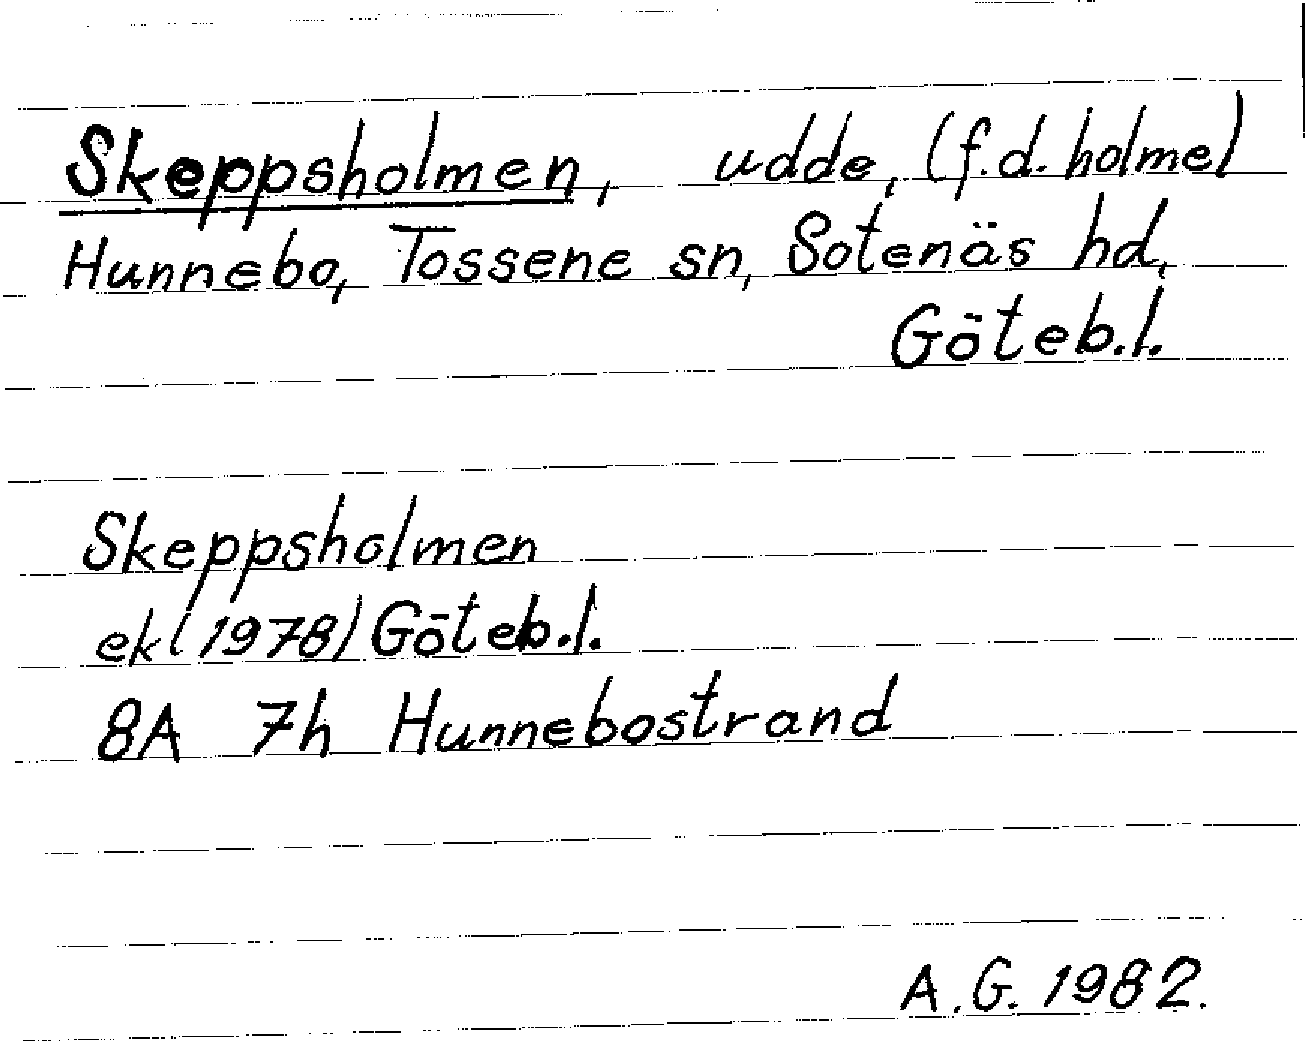 Skeppsholmen, udde, (f.d. holme)
Hunnebo, Tossene sn, Sotenäs hd,
Göteb.l.
Skeppsholmen
ek (1978) Göteb.l.
8A 7h Hunnebostrand
A.G. 1982.